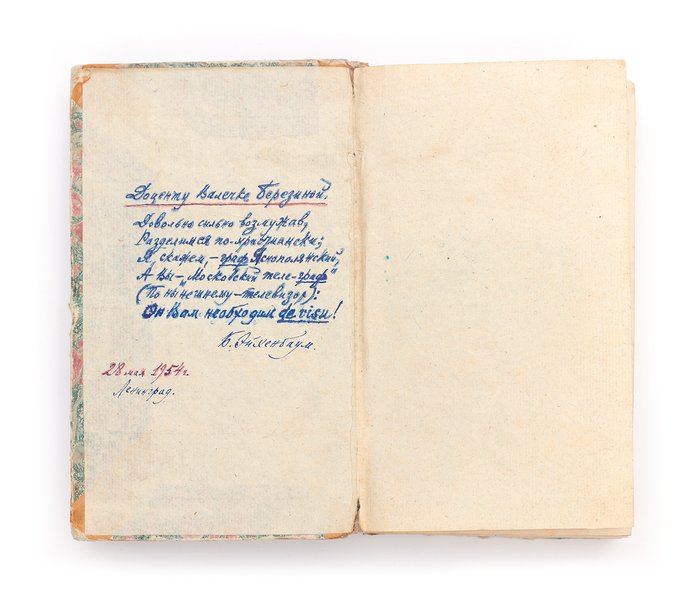 Доценту Валечке Березиной.
Довольно сильно возмужав,
Разделимся по-христиански;
Я, скажем, - граф Яснополянский,
А Вы - „Московский теле-граф"
(По нынешнему - телевизор):
Он Вам необходим de visu!
Б. Эйхенбаум.
28 мая 1954 г.
Ленинград.